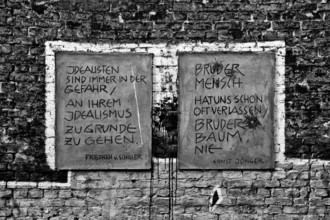 JDEALISTEN
SIND IMMER IN DER
GEFAHR,
AN IHREM
JDEALISMUS
ZU GRUNDE
ZU GEHEN..
FRIEDRICH V. SCHILLER
BRUDER
MENSCH
HAT UNS SCHON
OFT VERLASSEN,
BRUDER
BAUM,
NIE
ERNST JÜNGER